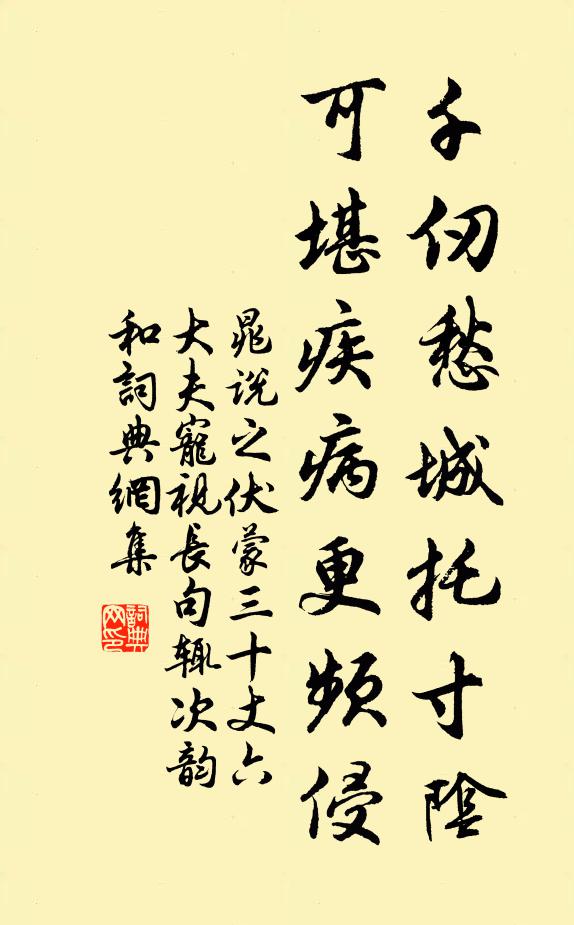 千仞愁城托寸陰
可堪疾病更頻侵
晁说之伏蒙三十丈六
大夫寵視長句輒次韵
和詞典網集
詞典网印